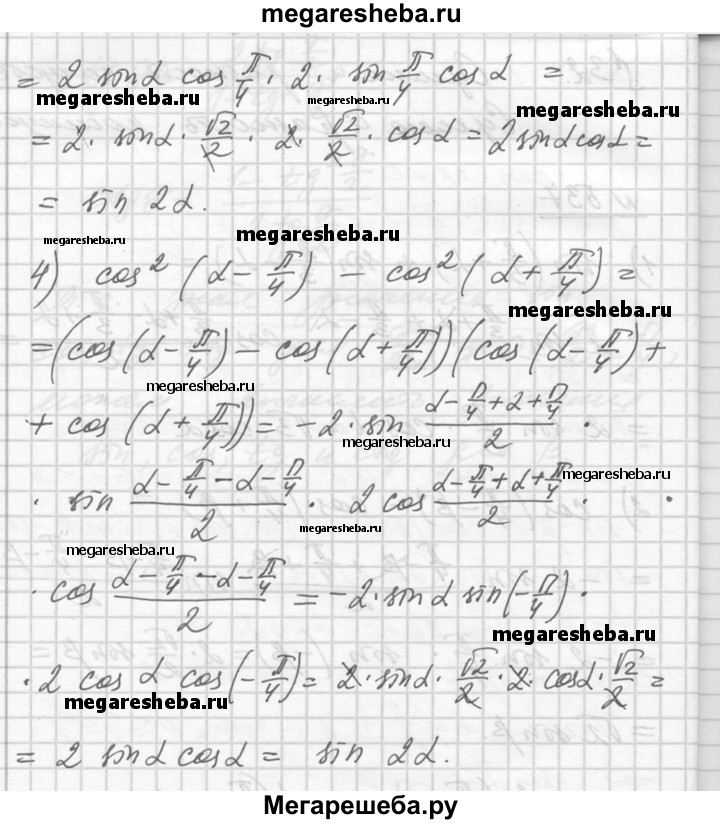 megaresheba.ru
= 2 sinα cos π/4 · 2 · sin π/4 cosα =
megaresheba.ru megaresheba.ru megaresheba.ru
= 2 · sinα · √2/2 · 2 · √2/2 · cosα = 2sinαcosα =
= sin 2α.
megaresheba.ru megaresheba.ru
4) cos² (α - π/4) - cos² (α + π/4) =
megaresheba.ru
= (cos (α - π/4) - cos (α + π/4)) (cos (α - π/4) +
megaresheba.ru
+ cos (α + π/4)) = -2 · sin (α - π/4 + α + π/4)/2 ·
megaresheba.ru
· sin (α - π/4 - α - π/4)/2 · 2 cos (α - π/4 + α + π/4)/2 ·
megaresheba.ru
megaresheba.ru
megaresheba.ru
· cos (α - π/4 - α - π/4)/2 = -2 · sinα sin (-π/4) ·
megaresheba.ru
· 2 cosα cos (-π/4) = 2 · sinα · √2/2 · 2 · cosα · √2/2 =
megaresheba.ru megaresheba.ru
= 2 sinα cosα = sin 2α.
Мегарешеба.ру